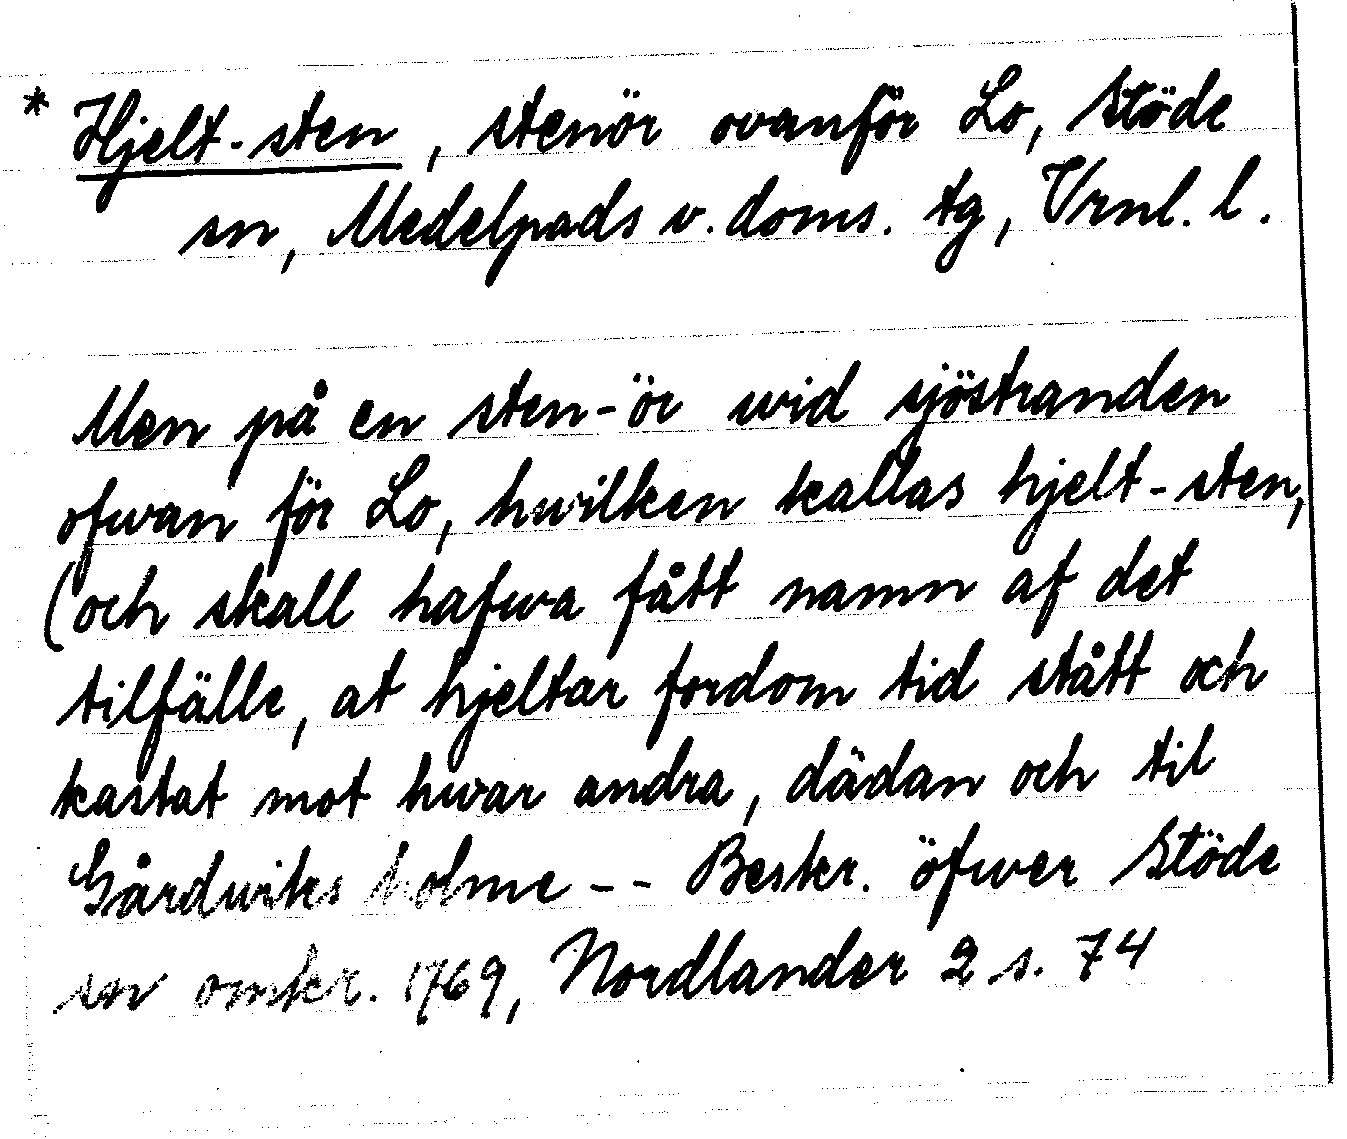 * Hjelt-sten, stenör ovanför Lo, Stöde
sn, Medelpads v. doms. tg, Vrnl. l.
Men på en sten-ör wid sjöstranden
ofwan för Lo, hwilken kallas hjelt-sten,
(och skall hafwa fått namn af det
tilfälle, at hjeltar fordom tid stått och
kastat mot hwar andra, dädan och til
Gårdwiks holme -- Beskr. öfwer Stöde
sn omkr. 1769, Nordlander 2 s. 74